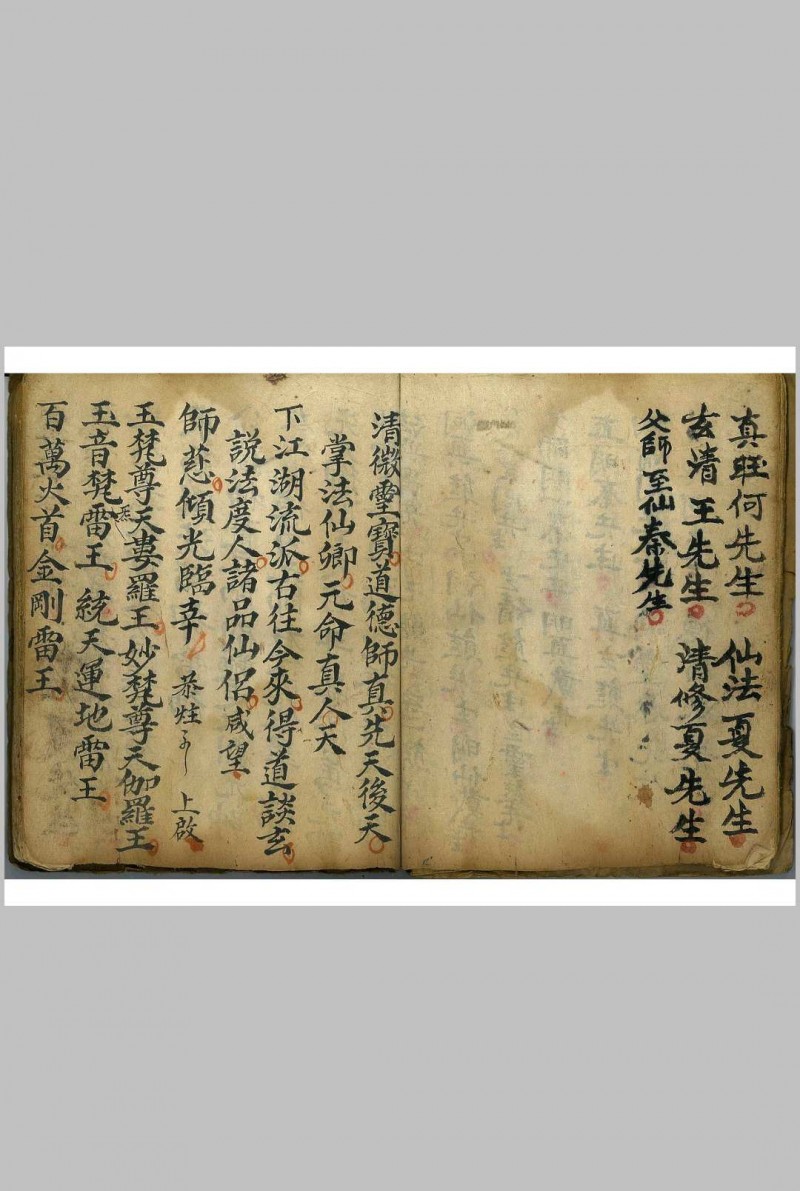 真旺何先生 仙法夏先生
玄清王先生 清修夏先生
父師至仙秦先生
清微靈寶道德師真先天後天
掌法仙卿元命真人天
下江湖流派古往今來得道談玄
說法度人諸品仙侶咸望
師慈傾光臨幸 恭炷 上啟
玉梵尊天婁羅王妙梵尊天伽羅王
玉音梵雷王 統天運地雷王
百萬火首金剛雷王